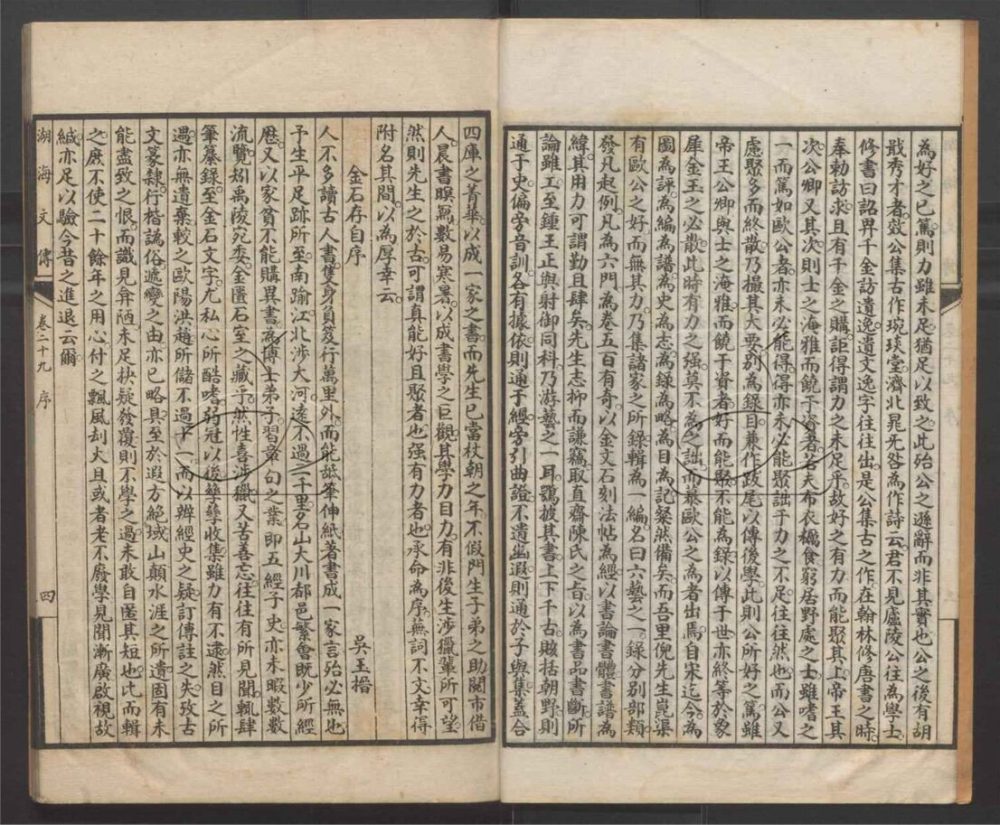 為好之已篤則力雖未足猶足以致之此殆公之遜辭而非其實也公之後有胡
戢秀才者效公集古作琬琰堂濟北晁旡咎為作詩云君不見廬陵公往為學士
修書曰詔界千金訪遺逸遺文逸字往往出是公集古之作在翰林修唐書之時
奉勅訪求且有千金之購詎得謂力之未足乎故好之有力而能聚其上帝王其
次公卿又其次則士之淹雅而饒于資者若夫布衣糲食窮居野處之士雖嗜之
一而篤如歐公者亦未必能得得亦未必能聚詘于力之不足往往然也而公又
慮聚多而終散乃撮其大要別為錄目兼作跋尾以傳後學此則公所好之篤雖
帝王公卿與士之淹雅而饒于資者好而能聚不能為錄以傳于世亦終等於象
犀金玉之必散此時有力之强莫不為之詘而藂歐公之為者出焉自宋迄今為
圖為評為編為譜為史為志為錄為略為目為記粲然備矣而吾里倪先生嵬渠
有歐公之好而無其力乃集諸家之所錄輯為一編名曰六藝之一錄分別部類
發凡起例凡為六門為卷五百有奇以金文石刻法帖為經以書論書體書譜為
緯其用力可謂勤且肆矣先生志抑而謙竊取直齋陳氏之旨以為書品書斷所
論雖王至鍾王正與射御同科乃游藝之一耳鶚披其書上下千古賅括朝野則
通于史偏旁音訓各有據依則通于經旁引曲證不遺幽遐則通於子與集蓋合
四庫之菁華以成一家之書而先生已當杖朝之年不假門生子弟之助閱市借
人晨書暝寫數易寒暑以成書學之巨觀其學力目力有非後生涉獵輩所可望
然則先生之於古可謂真能好且聚者也强有力者也承命為序蕪詞不文幸得
附名其間以為厚幸云
金石存自序
吳玉搢
人不多讀古人書隻身負笈行萬里外而能舐筆伸紙著書成一家言殆必無也
予生平足跡所至南踰江北涉大河遠不過二千里名山大川都邑繁會既少所經
歷又以家貧不能購異書為博士弟子習章句之業即五經子史亦未暇數數
流覽矧禹陵宛委金匱石室之藏乎然性喜涉獵又苦善忘往往有所見聞輒肆
筆纂錄至金石文字尤私心所酷嗜弱冠以後孳孳收集雖力有不逮然目之所
遇亦無遺棄較之歐陽洪趙所儲不過十一而以辨經史之疑訂傳註之失攷古
文篆隸行楷譌俗遞變之由亦已略具至於遐方絕域山顛水涯之所遺固有未
能盡致之恨而識見弇陋未足抉疑發覆則不學之過未敢自匿其短也比而輯
之庶不使二十餘年之用心付之飄風刦火且或者老不廢學見聞漸廣啟視故
緘亦足以驗今昔之進退云爾
湖海文傳 卷二十九 序 四